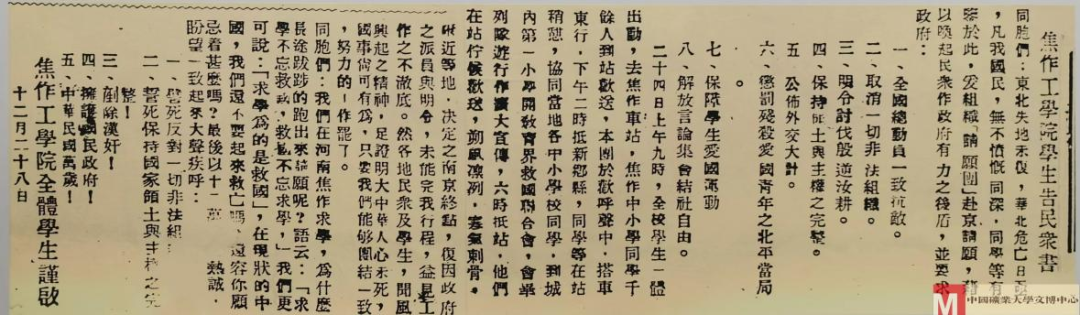 焦作工學院學生告民衆書
同胞們：東北失地未復，華北危亡日亟
，凡我國民，無不憤慨同深，同學等有
鑒於此，爰組織「請願團」赴京請願，藉
以喚起民衆作政府有力之後盾，並要求
政府：
一、全國總動員一致抗敵。
二、取消一切非法組織。
三、明令討伐殷逆汝耕。
四、保持領土與主權之完整。
五、公佈外交大計。
六、懲罰殘殺愛國青年之北平當局
。
七、保障學生愛國運動
八、解放言論集會結社自由。
二十四日上午九時，全校學生一體
出動，去焦作車站，焦作中小學同學千
餘人到站歡送，本團於歡呼聲中，搭車
東行，下午二時抵新鄉縣，同學等在站
稍憩，協同當地各中小學校同學，到城
內第一小學開敎育界救國聯合會，會畢
列隊遊行作擴大宣傳，六時抵站，他們
在站佇候歡送，朔風凛冽，寒氣刺骨。
附近等地，决定之南京終點，復因政府
之派員與明令，未能完我行程，益見工
作之不澈底。然各地民衆及學生，聞風
興起之精神，足證明大中華人心未死，
國事尚可有為，只要我們能够團結一致
，努力的工作罷了。
同胞們：我們在河南焦作求學，爲什麼
長途跋踄的跑出來請願呢？語云：「求
學不忘救國，救國不忘求學，」我們更
可說：「求學爲的是救國」，在現狀的中
國，我們還不要起來救亡嗎，還容你顧
忌着甚麼嗎？最後以十二萬 熱誠，
盼望一致起來大聲疾呼：
一、誓死反對一切非法組
二、誓死保持國家領土與主權之完
整！
三、剷除漢奸！
四、擁護國民政府！
五、中華民國萬歲！
焦作工學院全體學生謹啟
十二月二十八日
中國礦業大學文博中心